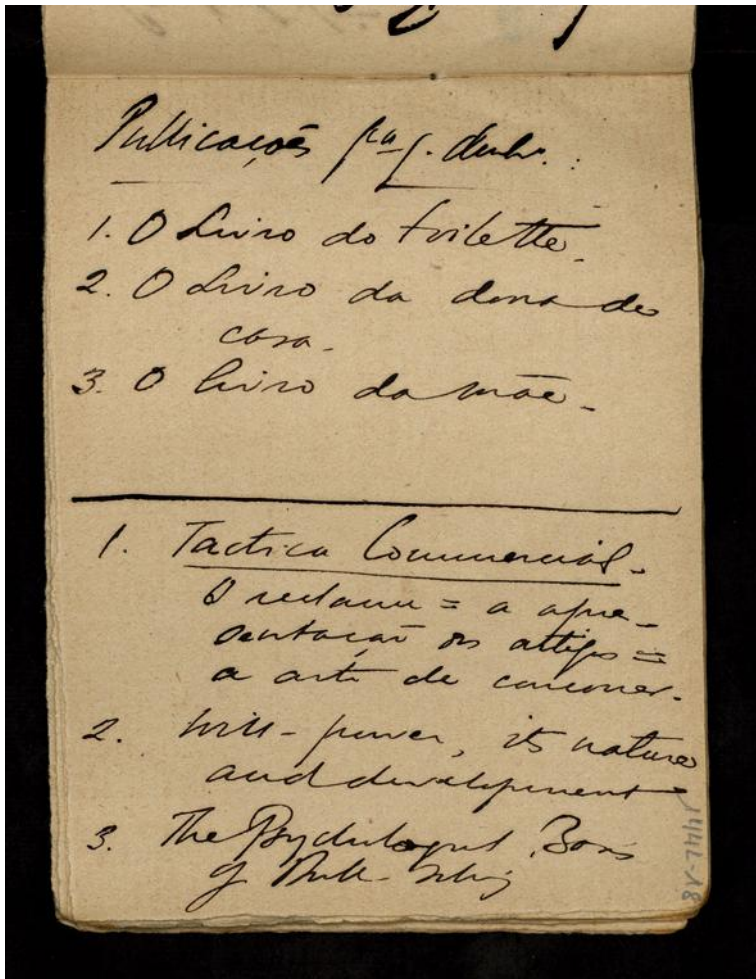 Publicações pª f. dinhº:
1. O Livro do toilette.
2. O Livro da dona de
casa.
3. O livro da mãe.
1. Tactica Commercial.
O reclame = a apre-
sentação dos artigos =
a arte de convencer.
2. Will-power, its nature
and development
3. The Psychological Basis
of
144L-18